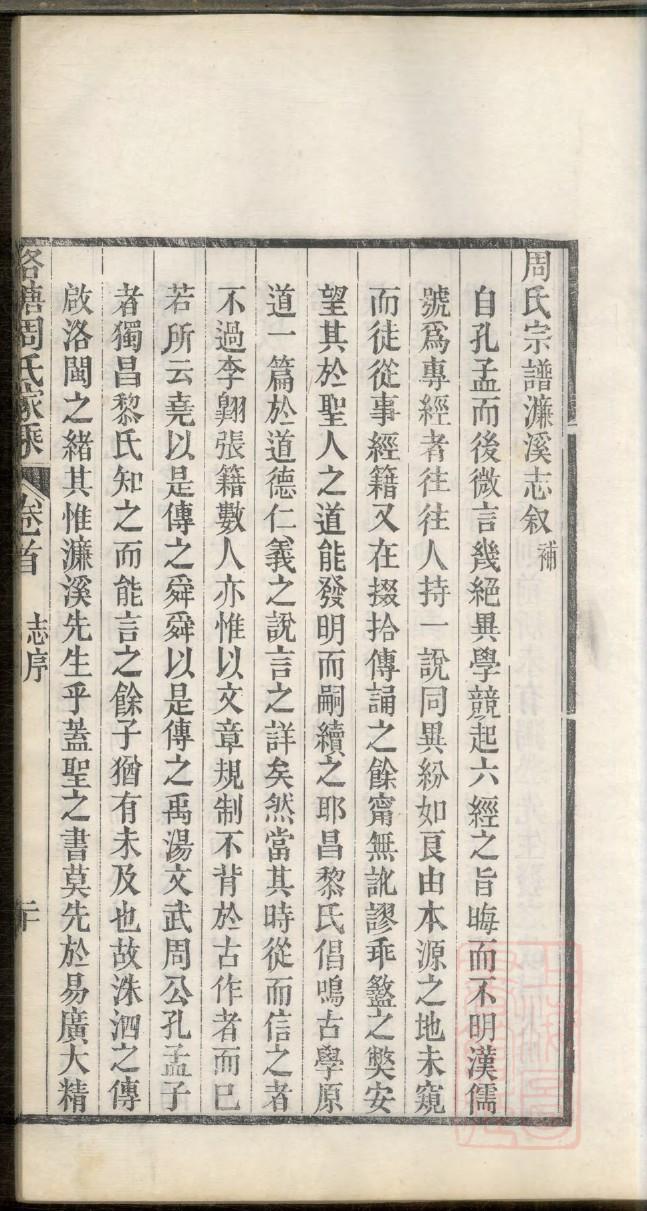 周氏宗譜濂溪志叙補
自孔孟而後微言幾絕異學競起六經之旨晦而不明漢儒
號爲專經者往往人持一說同異紛如良由本源之地未窺
而徒從事經籍又在掇拾傳誦之餘甯無訛謬乖盭之獘安
望其於聖人之道能發明而嗣續之耶昌黎氏倡鳴古學原
道一篇於道德仁義之說言之詳矣然當其時從而信之者
不過李翺張籍數人亦惟以文章規制不背於古作者而已
若所云堯以是傳之舜舜以是傳之禹湯文武周公孔孟子
者獨昌黎氏知之而能言之餘子猶有未及也故洙泗之傳
啟洛閩之緒其惟濂溪先生乎蓋聖之書莫先於易廣大精
洛塘周氏家乘 卷首 志序